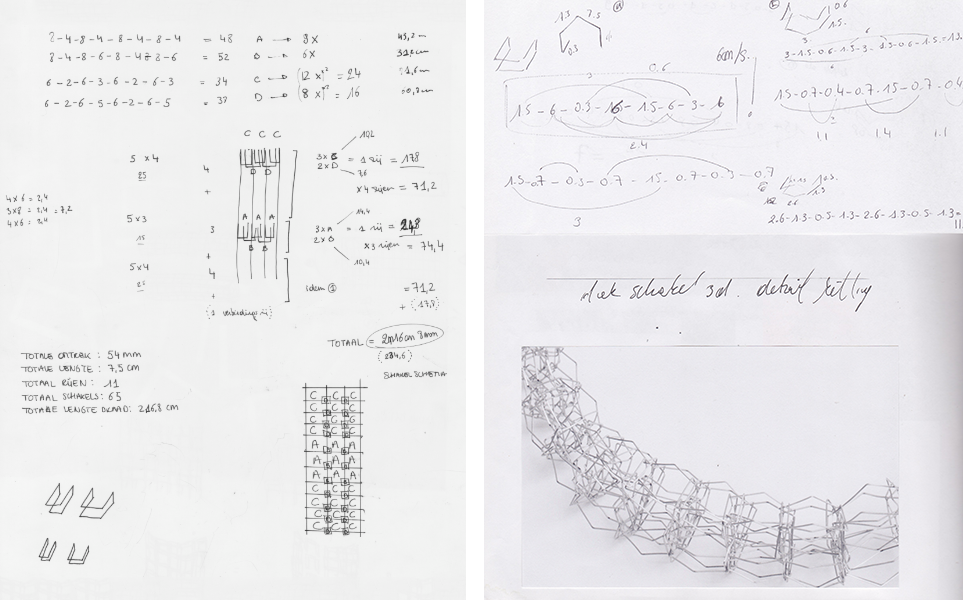 2-4-8-4-8-4-8-4 = 48 A → 9x 43,2 m
8-4-8-6-8-4-8-6 = 52 B → 6x 31,2 cm
6-2-6-3-6-2-6-3 = 34 C → (12 x)² = 24 81,6 cm
6-2-6-5-6-2-6-5 = 38 D → (8 x)² = 16 60,8 cm
C C C
D D
A A A
B B
5 x4
25
4
+
5x3
15
3
+
5x4
25
4
+
4x6 = 2,4
3x8 = 2,4 = 7,2
4x6 = 2,4
10,2
3x C
2x D = 1 rij = 178
7,6
x4 rijen = 71,2
14,4
3xA
2xB = 1 rij = 24,8
x3 rijen = 74,4
10,4
idem ① = 71,2
+ (17,8)
(1 verbindings rij)
TOTAAL = 2m16cm 8mm
(234,6)
SCHAKELSCHEMA
TOTALE OMTREK : 54 mm
TOTALE LENGTE : 7,5 cm
TOTAAL RIJEN : 11
TOTAAL SCHAKELS : 65
TOTALE LENGTE DRAAD : 216,8 cm
C C C
C C C
C C C
C C C
A A A
A A A
A A A
C C C
C C C
C C C
C C C
1.3 7.5
0.3
0.6
1.5
6cm/s.
3 0.6
1.5 - 6 - 0.3 - 1.6 - 1.5 - 6 - 3 - 6
2.4
1.5 - 0.7 - 0.3 - 0.7 - 1.5 - 0.7 - 0.3 - 0.7
3
3 6
3-1.5-0.6-1.5-3-1.5-0.6-1.5 =
6
1.5-0.7-0.4-0.7-1.5-0.7-0.4
2
1.1 1.4 1.1
2.6
2.6-1.3-0.5-1.3-2.6-1.3-0.5-1.3 =
11
schakel 3d. detail ketting